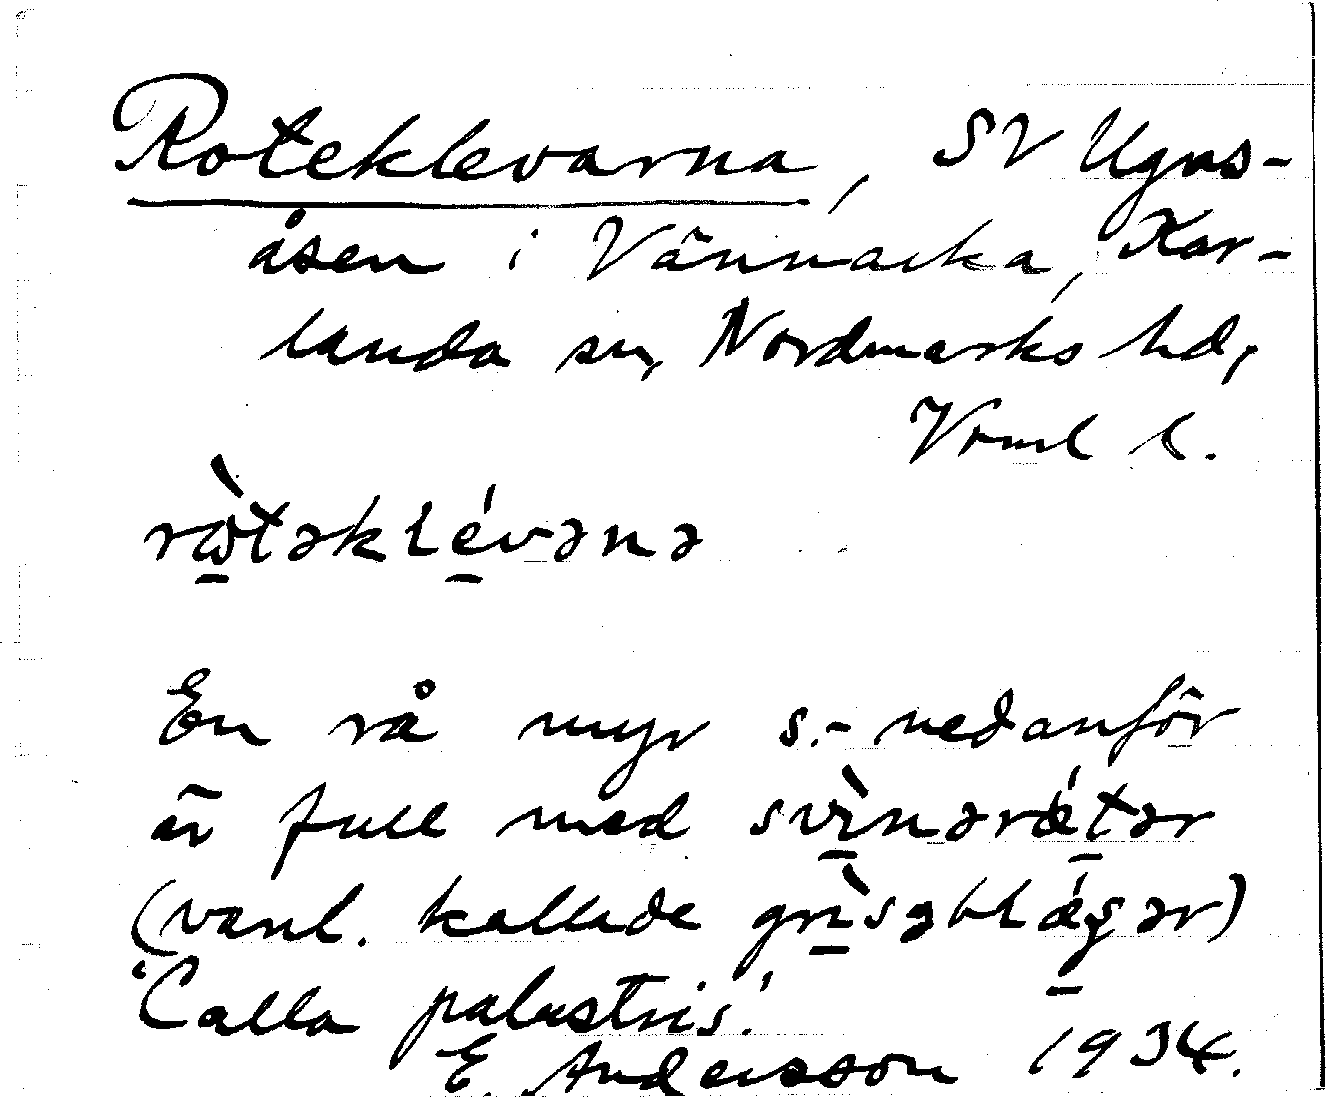 Roteklevarna, SV Ugns-
åsen i Vännacka, Kar-
landa sn, Nordmarks hd,
Vrml l.
rὼtəklévənə
En rå myr s.-nedanför
är full med svìnərǽtər
(vanl. kallade grìsəblǽgər)
'Calla palustris'.
E. Andersson 1934.